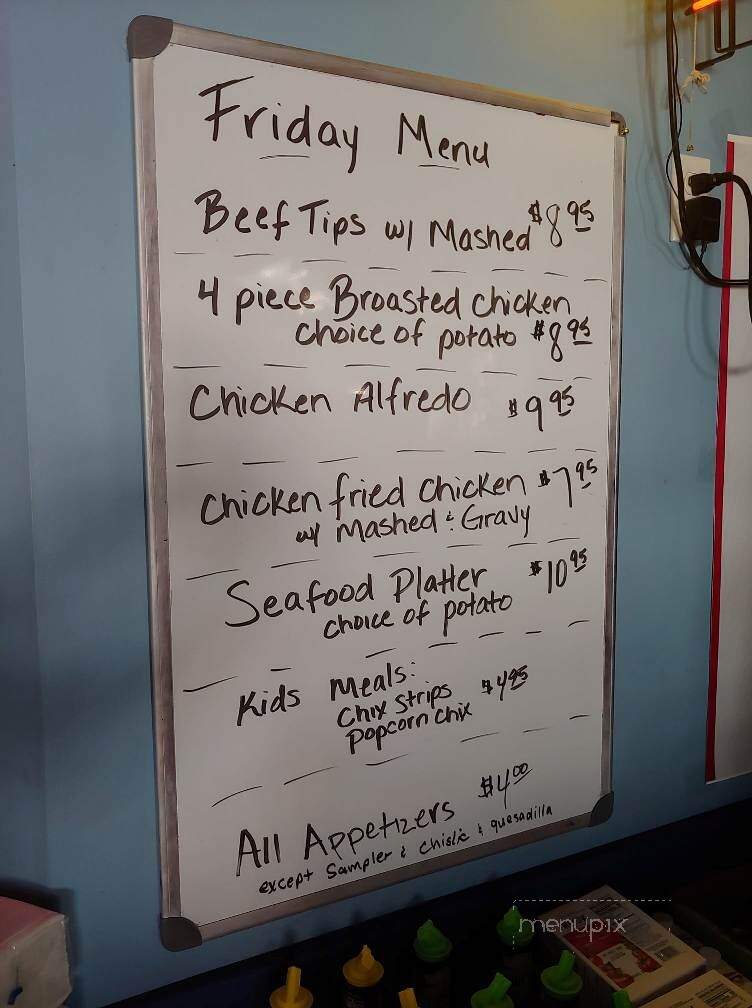 Friday Menu
Beef Tips w/ Mashed $8.95
4 piece Broasted Chicken
choice of potato $8.95
Chicken Alfredo $9.95
Chicken fried Chicken $7.95
w/ Mashed & Gravy
Seafood Platter $10.95
choice of potato
Kids Meals:
Chix Strips $4.95
Popcorn Chix
All Appetizers $4.00
except Sampler & Chislic & quesadilla
menupix